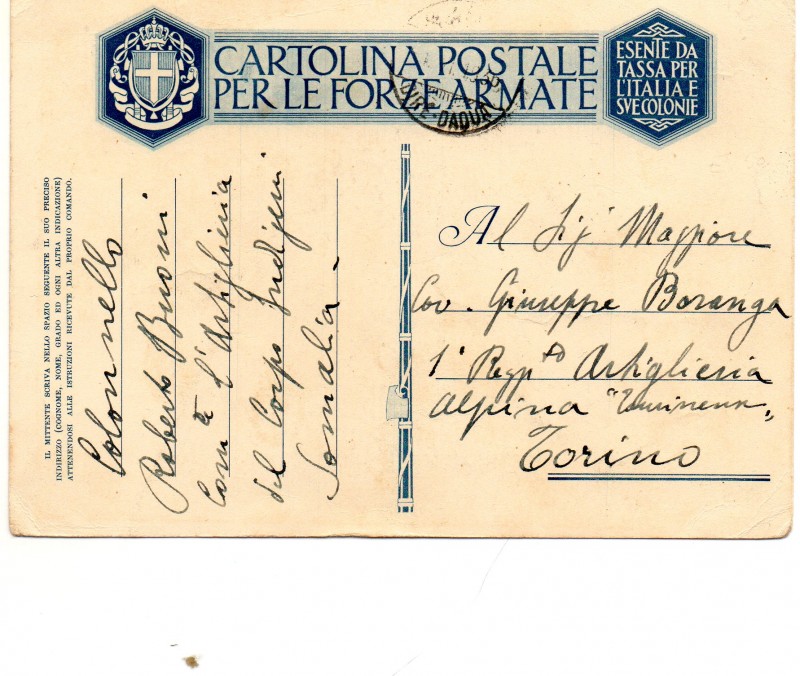 CARTOLINA POSTALE
PER LE FORZE ARMATE
ESENTE DA
TASSA PER
L'ITALIA E
SVE COLONIE
IL MITTENTE SCRIVA NELLO SPAZIO SEGUENTE IL SUO PRECISO
INDIRIZZO (COGNOME, NOME, GRADO ED OGNI ALTRA INDICAZIONE)
ATTENENDOSI ALLE ISTRUZIONI RICEVUTE DAL PROPRIO COMANDO.
Colonnello
Roberto Buoni
Com.te l'Artiglieria
del Corpo Indigeni
Somalia -
Al Sig. Maggiore
Cav. Giuseppe Boranga
1° Regg.to Artiglieria
Alpina "Taurinense"
Torino